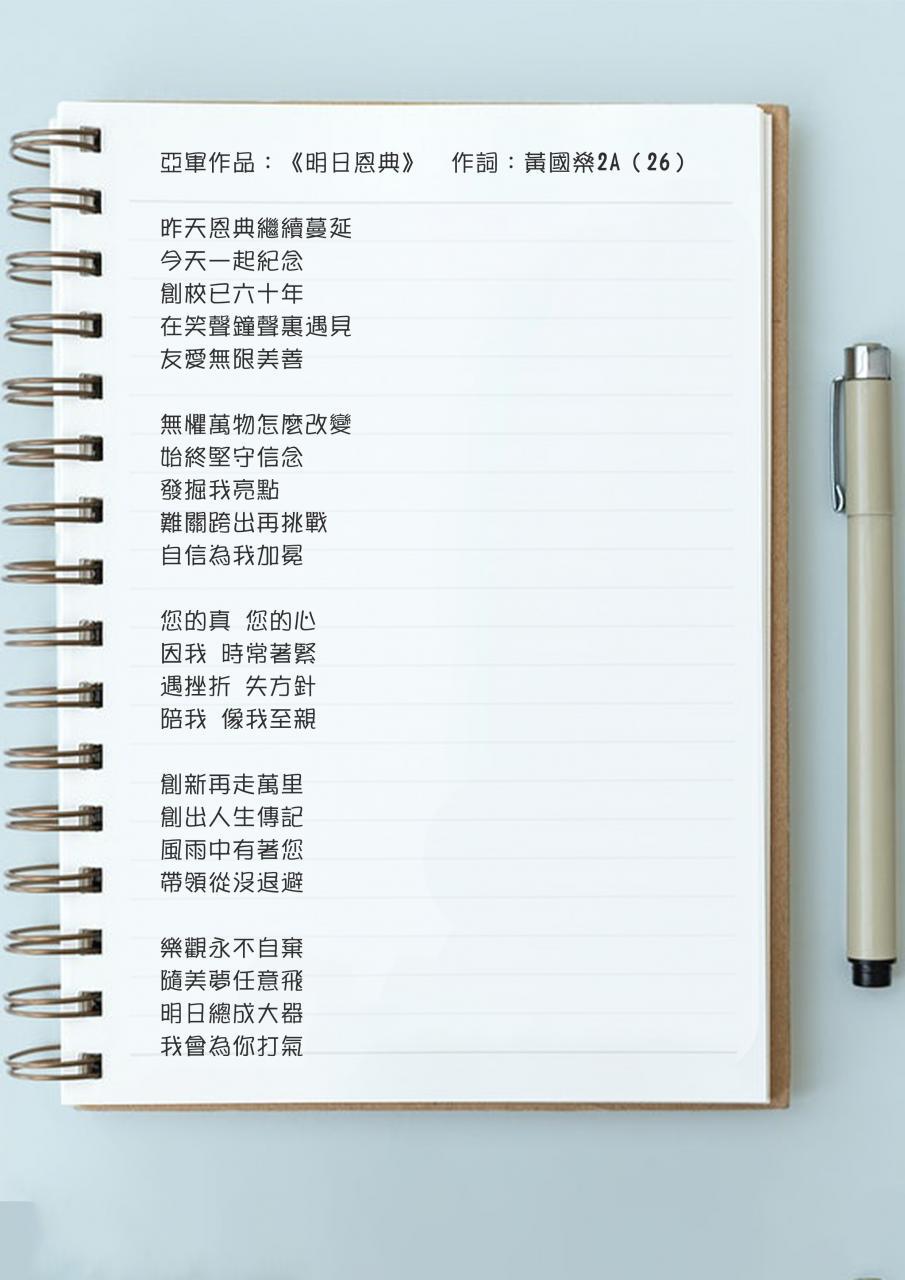 亞軍作品：《明日恩典》 作詞：黃國燊2A（26）
昨天恩典繼續蔓延
今天一起紀念
創校已六十年
在笑聲鐘聲裏遇見
友愛無限美善
無懼萬物怎麼改變
始終堅守信念
發掘我亮點
難關跨出再挑戰
自信為我加冕
您的真 您的心
因我 時常著緊
遇挫折 失方針
陪我 像我至親
創新再走萬里
創出人生傳記
風雨中有著您
帶領從沒退避
樂觀永不自棄
隨美夢任意飛
明日總成大器
我會為你打氣